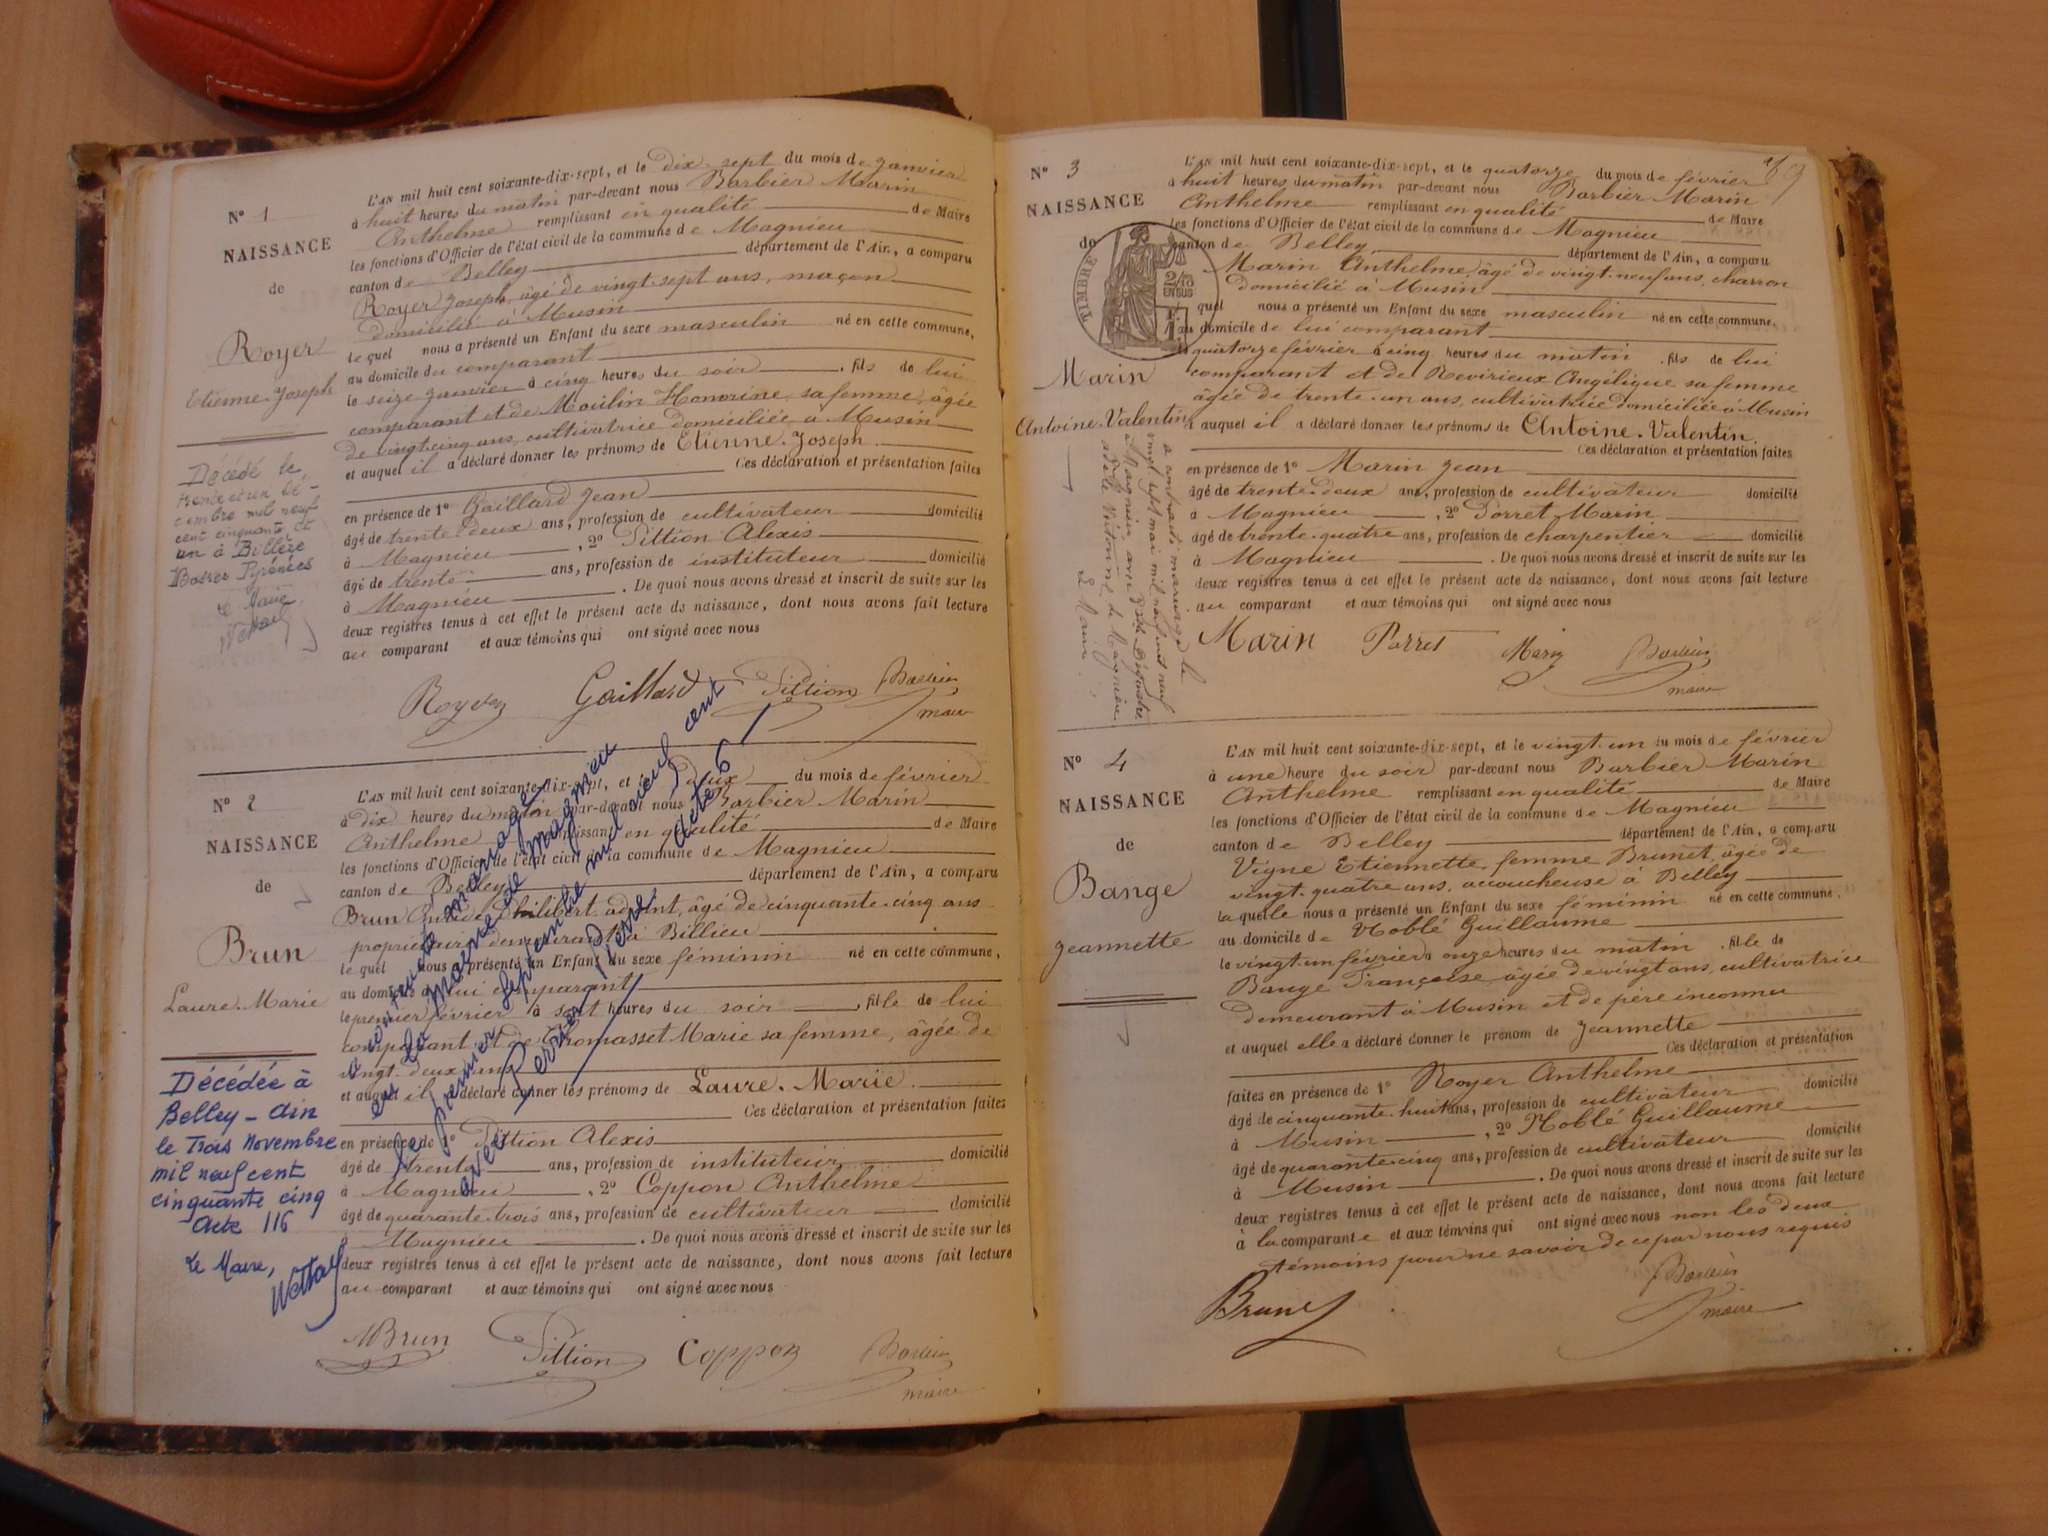 Nº 1
NAISSANCE
de
Royer
Etienne-Joseph
Décédé le
trente et un Dé-
cembre mil neuf
cent cinquante et
un à Billère
Basses Pyrénées
Le Maire
L'AN mil huit cent soixante-dix-sept, et le dix-sept du mois de janvier
à huit heures du matin par-devant nous Barbier Marin
Anthelme remplissant en qualité de Maire
les fonctions d'Officier de l'état civil de la commune de Magnieu
canton de Belley département de l'Ain, a comparu
Royer Joseph, âgé de vingt-sept ans, maçon
domicilié à Musin
le quel nous a présenté un Enfant du sexe masculin né en cette commune,
au domicile du comparant
le seize janvier à cinq heures du soir, fils de lui
comparant et de Moulin Honorine, sa femme, âgée
de vingt-cinq ans, cultivatrice domiciliée à Musin
et auquel il a déclaré donner les prénoms de Etienne-Joseph
Ces déclaration et présentation faites
en présence de 1º Gaillard Jean
âgé de trente-deux ans, profession de cultivateur domicilié
à Magnieu, 2º Pittion Alexis
âgé de trente ans, profession de instituteur domicilié
à Magnieu. De quoi nous avons dressé et inscrit de suite sur les
deux registres tenus à cet effet le présent acte de naissance, dont nous avons fait lecture
au comparant et aux témoins qui ont signé avec nous
Royer Gaillard Pittion Barbier
maire
Nº 2
NAISSANCE
de
Brun
Laure-Marie
Décédée à
Belley - Ain
le Trois Novembre
mil neuf cent
cinquante cinq
Acte 116
Le Maire,
L'AN mil huit cent soixante-dix-sept, et le deux du mois de février
à dix heures du matin par-devant nous Barbier Marin
Anthelme remplissant en qualité de Maire
les fonctions d'Officier de l'état civil de la commune de Magnieu
canton de Belley département de l'Ain, a comparu
Brun Philibert adjoint, âgé de cinquante-cinq ans
propriétaire demeurant à Billieu
le quel nous a présenté un Enfant du sexe féminin né en cette commune,
au domicile de lui comparant
le premier février à sept heures du soir, fille de lui
comparant et de Thomasset Marie sa femme, âgée de
vingt-deux ans
et auquel il a déclaré donner les prénoms de Laure-Marie.
Ces déclaration et présentation faites
en présence de 1º Pittion Alexis
âgé de trente ans, profession de instituteur domicilié
à Magnieu, 2º Coppon Anthelme
âgé de quarante-trois ans, profession de cultivateur domicilié
à Magnieu. De quoi nous avons dressé et inscrit de suite sur les
deux registres tenus à cet effet le présent acte de naissance, dont nous avons fait lecture
au comparant et aux témoins qui ont signé avec nous
MBrun Pittion Coppon Barbier
maire
a contracté mariage
en la Mairie de Magnieu
le premier septembre mil neuf cent
avec Perrier Pierre acte 6
Nº 3
NAISSANCE
de
TIMBRE
2/10
EN SUS
Marin
Antoine-Valentin
a contracté mariage le
vingt sept mai mil neuf cent neuf
à Magnieu avec
Le Maire
L'AN mil huit cent soixante-dix-sept, et le quatorze du mois de février
à huit heures du matin par-devant nous Barbier Marin
Anthelme remplissant en qualité de Maire
les fonctions d'Officier de l'état civil de la commune de Magnieu
canton de Belley département de l'Ain, a comparu
Marin Anthelme, âgé de vingt-neuf ans, charron
domicilié à Musin
le quel nous a présenté un Enfant du sexe masculin né en cette commune,
au domicile de lui comparant
le quatorze février à cinq heures du matin, fils de lui
comparant et de Revirieux Angélique sa femme
âgée de trente-un ans, cultivatrice domiciliée à Musin
et auquel il a déclaré donner les prénoms de Antoine-Valentin.
Ces déclaration et présentation faites
en présence de 1º Marin Jean
âgé de trente-deux ans, profession de cultivateur domicilié
à Magnieu, 2º Porret Marin
âgé de trente-quatre ans, profession de charpentier domicilié
à Magnieu. De quoi nous avons dressé et inscrit de suite sur les
deux registres tenus à cet effet le présent acte de naissance, dont nous avons fait lecture
au comparant et aux témoins qui ont signé avec nous
Marin Porret Marin Barbier
maire
Nº 4
NAISSANCE
de
Bange
Jeannette
L'AN mil huit cent soixante-dix-sept, et le vingt-un du mois de février
à une heure du soir par-devant nous Barbier Marin
Anthelme remplissant en qualité de Maire
les fonctions d'Officier de l'état civil de la commune de Magnieu
canton de Belley département de l'Ain, a comparu
Vigne Etiennette, femme Brunet, âgée de
vingt-quatre ans, accoucheuse à Belley
la quelle nous a présenté un Enfant du sexe féminin né en cette commune,
au domicile de Noblé Guillaume
le vingt-un février à onze heures du matin, fille de
Bange Françoise, âgée de vingt ans, cultivatrice
demeurant à Musin et de père inconnu
et auquel elle a déclaré donner le prénom de Jeannette
Ces déclaration et présentation
faites en présence de 1º Royer Anthelme
âgé de cinquante-huit ans, profession de cultivateur domicilié
à Musin, 2º Noblé Guillaume
âgé de quarante-cinq ans, profession de cultivateur domicilié
à Musin. De quoi nous avons dressé et inscrit de suite sur les
deux registres tenus à cet effet le présent acte de naissance, dont nous avons fait lecture
à la comparante et aux témoins qui ont signé avec nous non les deux
témoins pour ne savoir de ce par nous requis
Brunet Barbier
maire